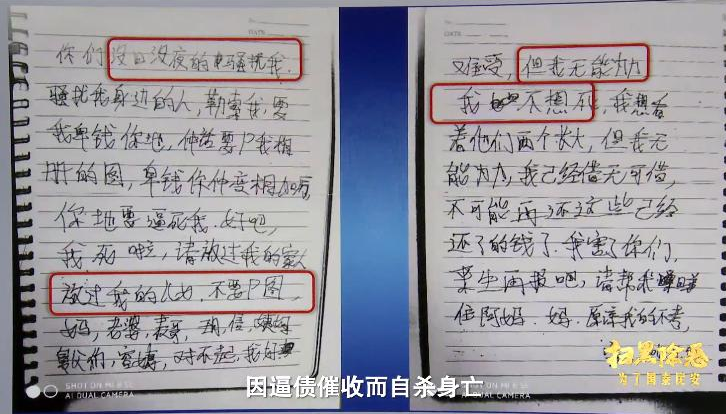 你们没日没夜的电骚扰我.
骚扰我身边的人,勒索我,要
我卑钱你地,仲话要P我相
册的图,卑钱你仲变相加
你地要逼死我.好吧,
我死啦,请放过我的家人
放过我的儿女.不要P图,
妈,老婆,
对不起,我好
难受,但我无能为力
我不想死,我想看
着他们两个长大,但我无
能为力,我己经借无可借,
不可能再还这些己经
还了的钱了.我害了你们,
来生再报吧,请帮我
住阿妈 妈,原谅我的不孝,
SHOT ON MI 8 SE
AI DUAL CAMERA
SHOT ON MI 8 SE
AI DUAL CAMERA
因逼债催收而自杀身亡
扫黑除恶
为了国泰民安